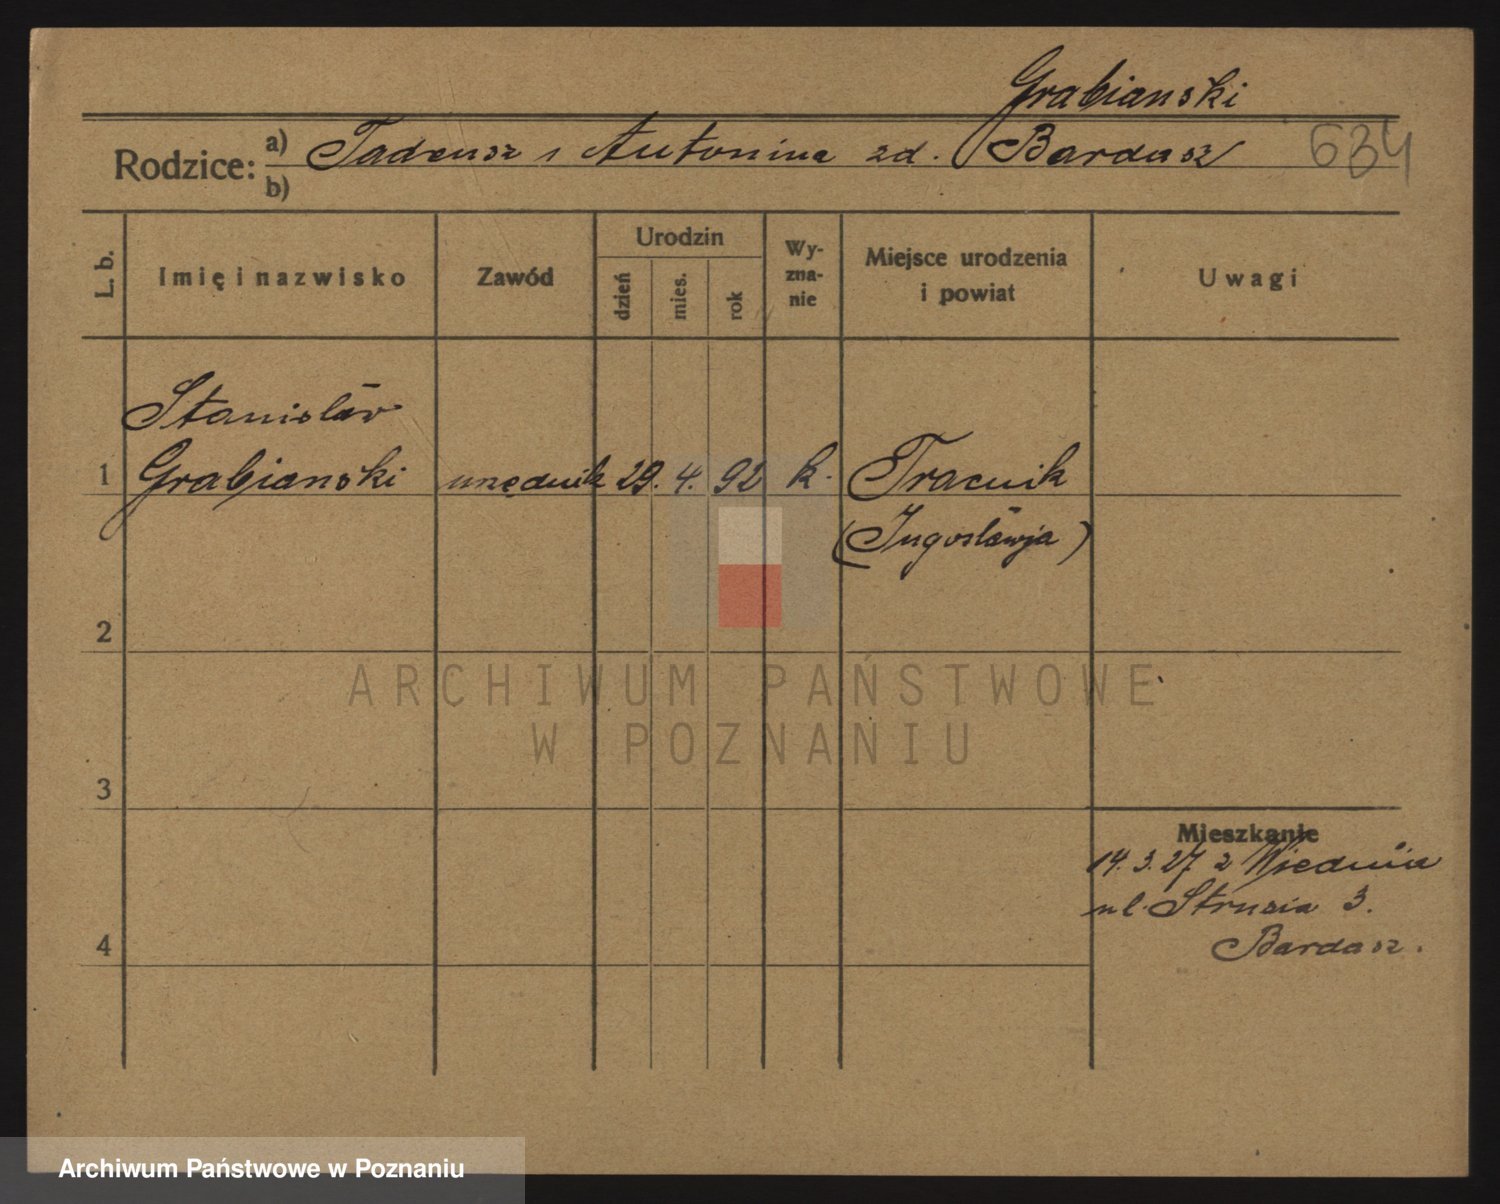 Grabianski
Rodzice: a) Tadeusz i Antonina zd. Bardasz 634
b)
L. b. Imię i nazwisko Zawód Urodzin dzień mies. rok Wy-zna-nie Miejsce urodzenia i powiat Uwagi
Stanisław
1 Grabianski urzędnik 29. 4. 92 k.
(Jugosławja)
2
ARCHIWUM PAŃSTWOWE
W POZNANIU
3
Mieszkanie
14. 3. 27 z Wiednia
ul. Strusia 3.
4 Bardasz.
Archiwum Państwowe w Poznaniu